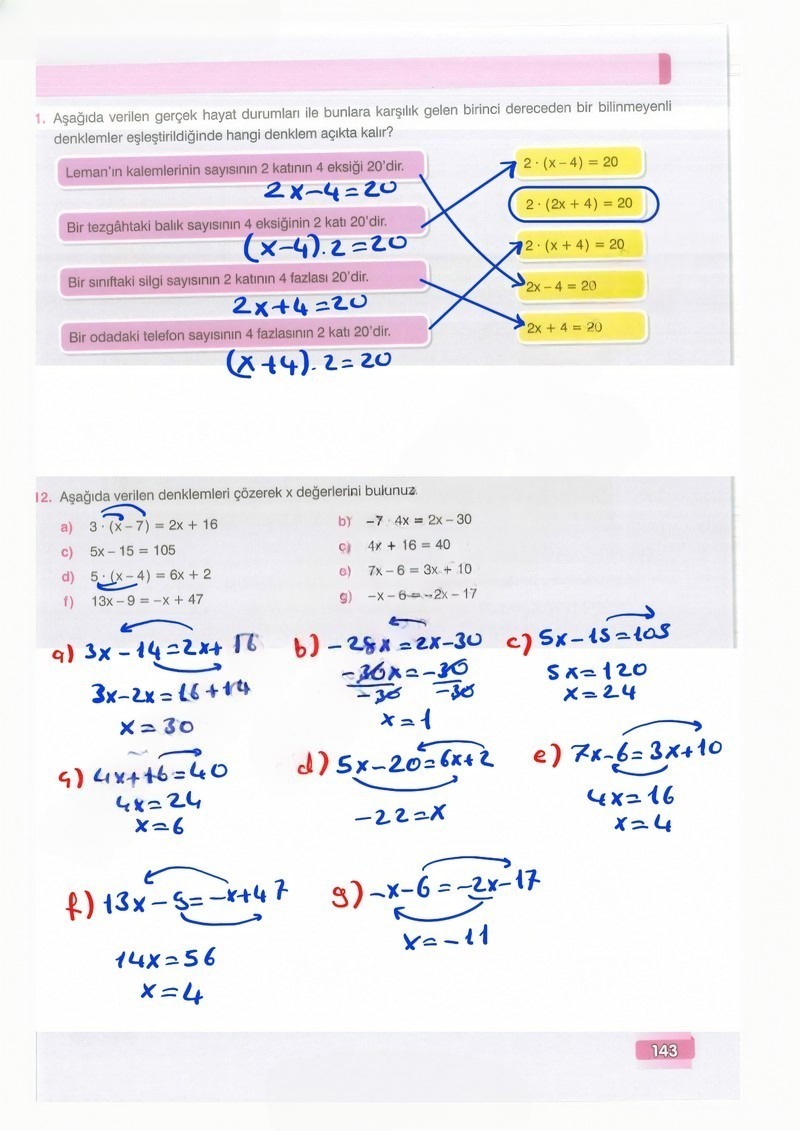 1. Aşağıda verilen gerçek hayat durumları ile bunlara karşılık gelen birinci dereceden bir bilinmeyenli
denklemler eşleştirildiğinde hangi denklem açıkta kalır?
Leman'ın kalemlerinin sayısının 2 katının 4 eksiği 20'dir.
2x-4=20
Bir tezgâhtaki balık sayısının 4 eksiğinin 2 katı 20'dir.
(x-4).2=20
Bir sınıftaki silgi sayısının 2 katının 4 fazlası 20'dir.
2x+4=20
Bir odadaki telefon sayısının 4 fazlasının 2 katı 20'dir.
(x+4).2=20
2 · (x – 4) = 20
2 · (2x + 4) = 20
2 · (x + 4) = 20
2x – 4 = 20
2x + 4 = 20
12. Aşağıda verilen denklemleri çözerek x değerlerini bulunuz.
a) 3 · (x – 7) = 2x + 16
b) –7 · 4x = 2x – 30
c) 5x – 15 = 105
ç) 4x + 16 = 40
d) 5 · (x – 4) = 6x + 2
e) 7x – 6 = 3x + 10
f) 13x – 9 = –x + 47
g) –x – 6 = –2x – 17
a) 3x-14=2x+16
3x-2x=16+14
x=30
b) -28x=2x-30
-30x=-30
-30 -30
x=1
c) 5x-15=105
5x=120
x=24
ç) 4x+16=40
4x=24
x=6
d) 5x-20=6x+2
-22=x
e) 7x-6=3x+10
4x=16
x=4
f) 13x-9=-x+47
14x=56
x=4
g) -x-6=-2x-17
x=-11
143